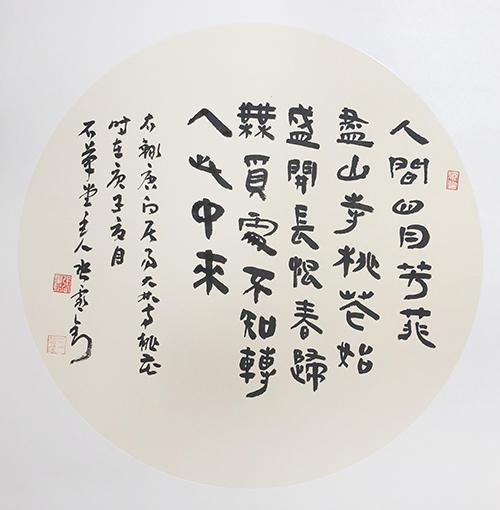 人間四月芳菲
盡山寺桃花始
盛開長恨春歸
無覓處不知轉
入此中來
右録唐白居易大林寺桃花
時在庚子月
石堂主人